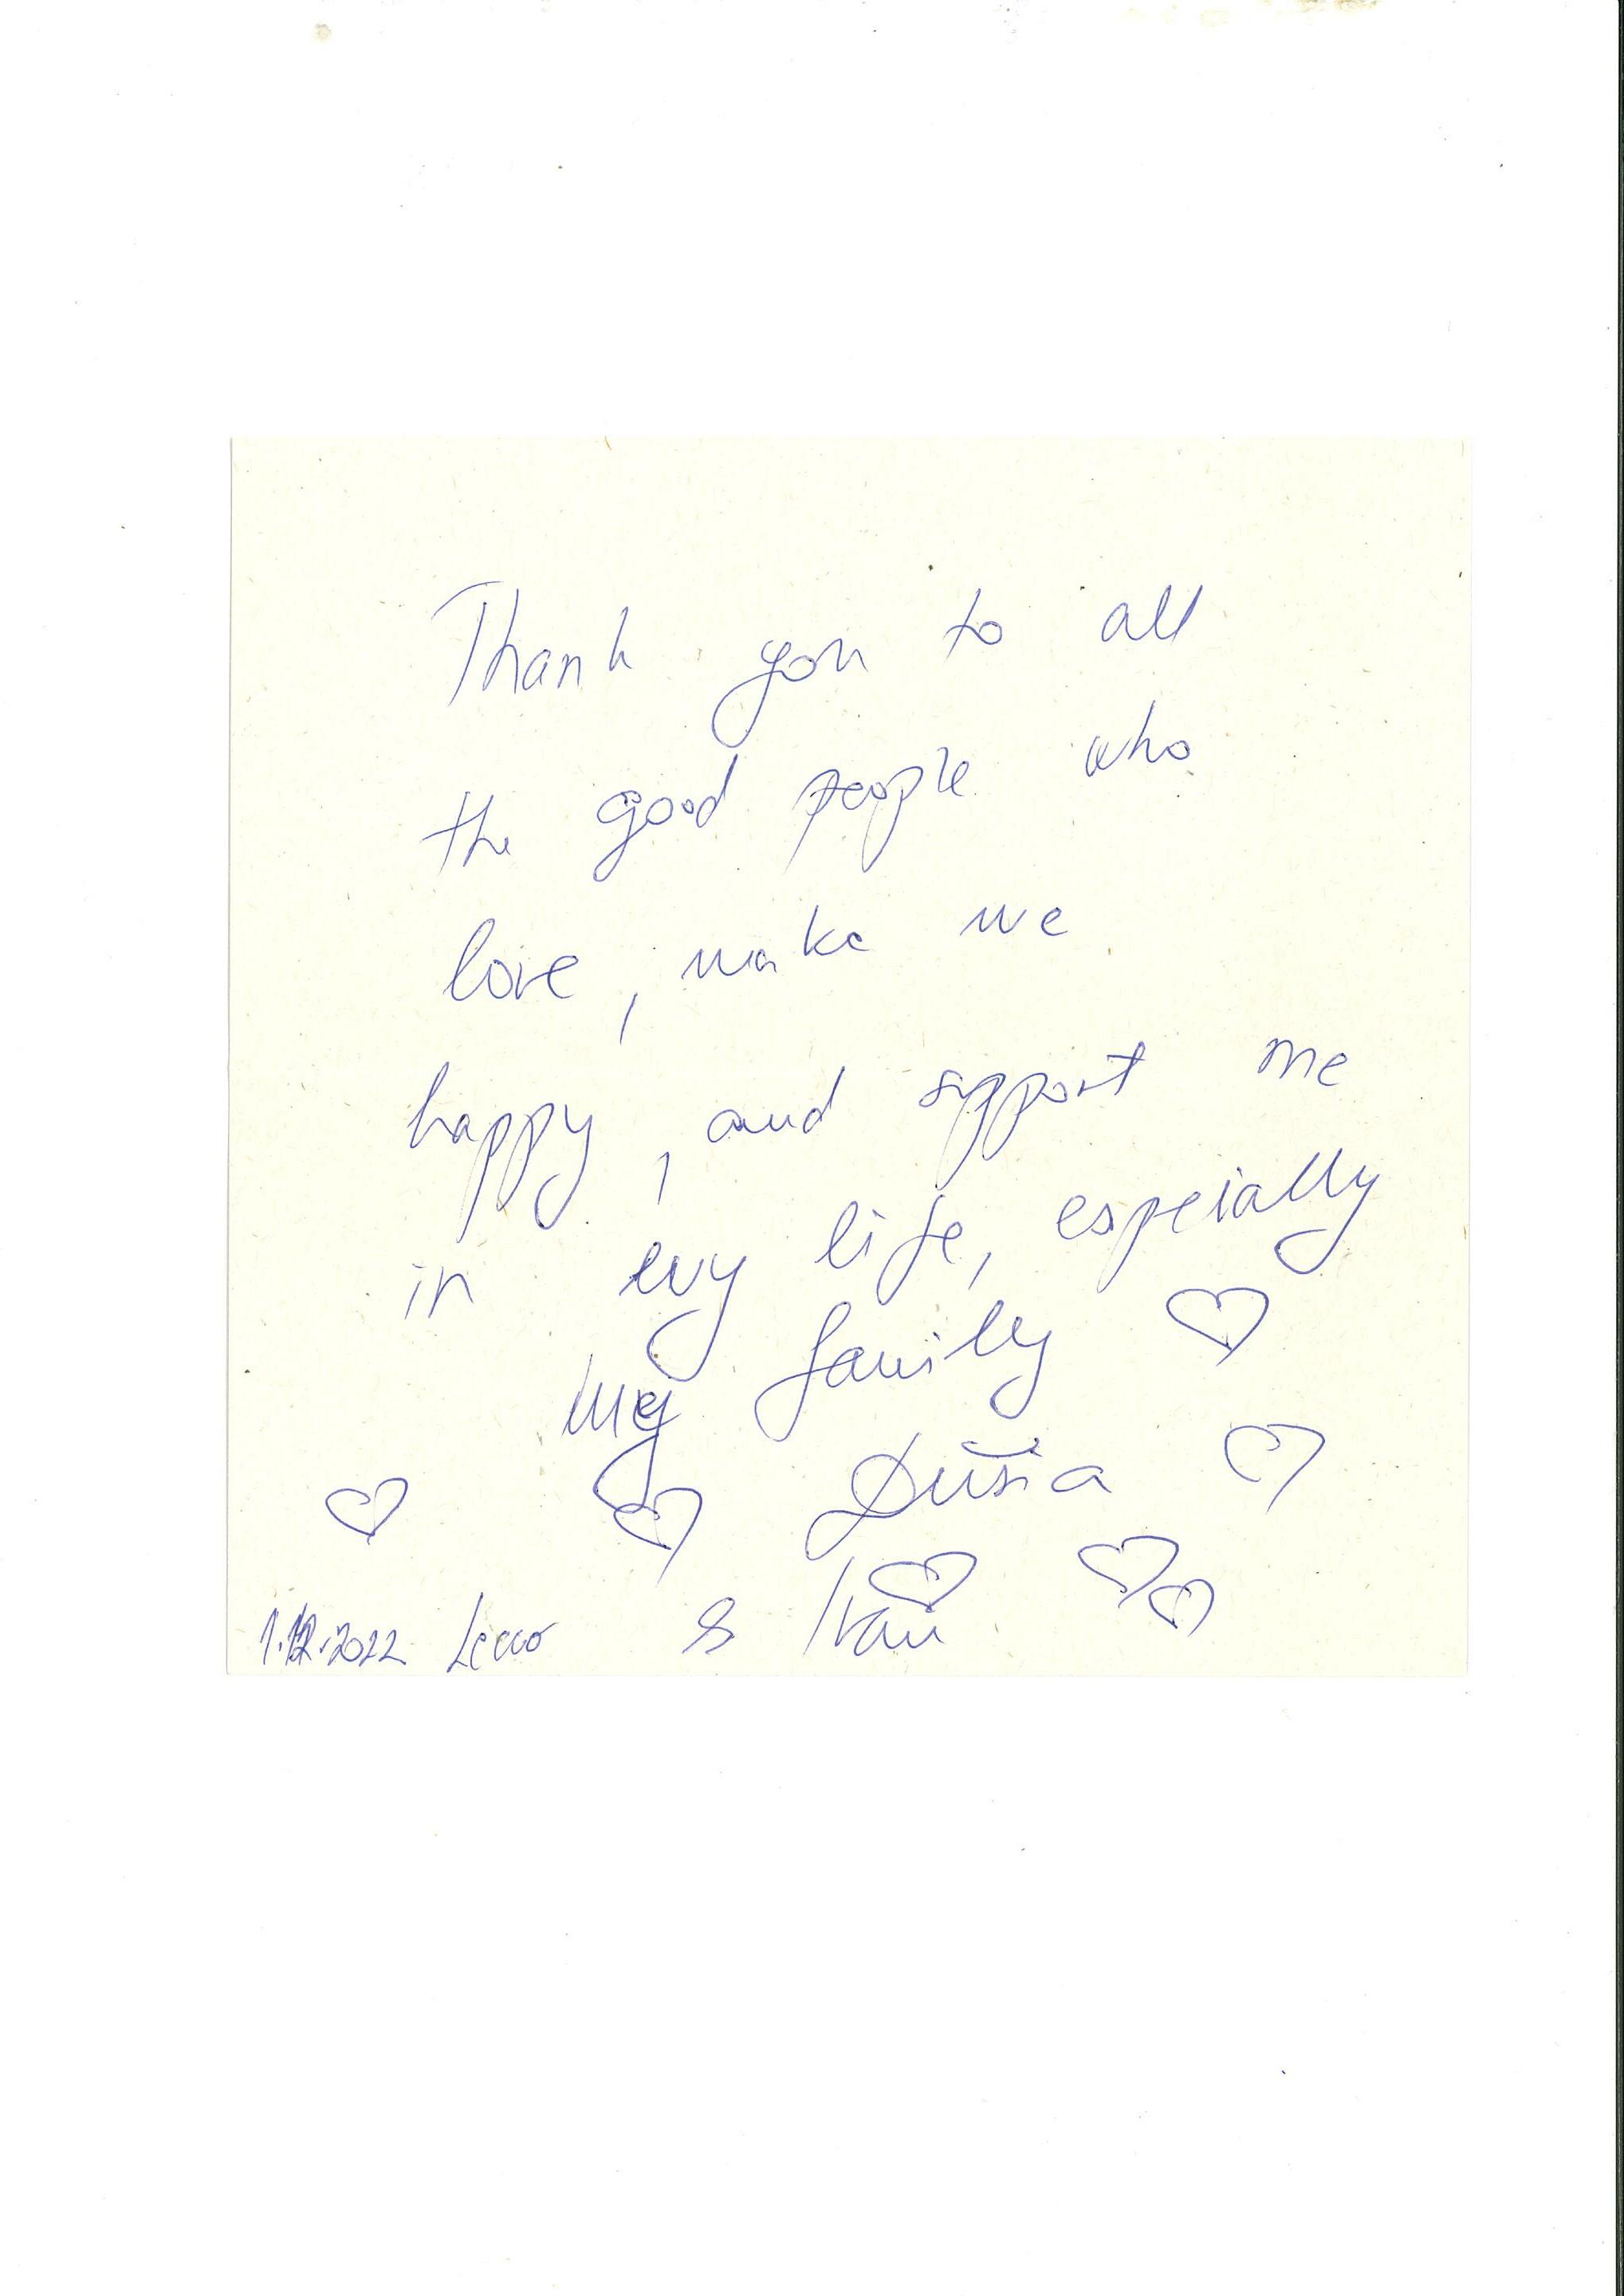 Thank you to all
the good people who
love, make me
happy, and support me
in my life, espeially
my family ♡
Dušia ♡
♡ ♡ ♡ ♡ ♡
1.12.2022 Lecco & Ivan